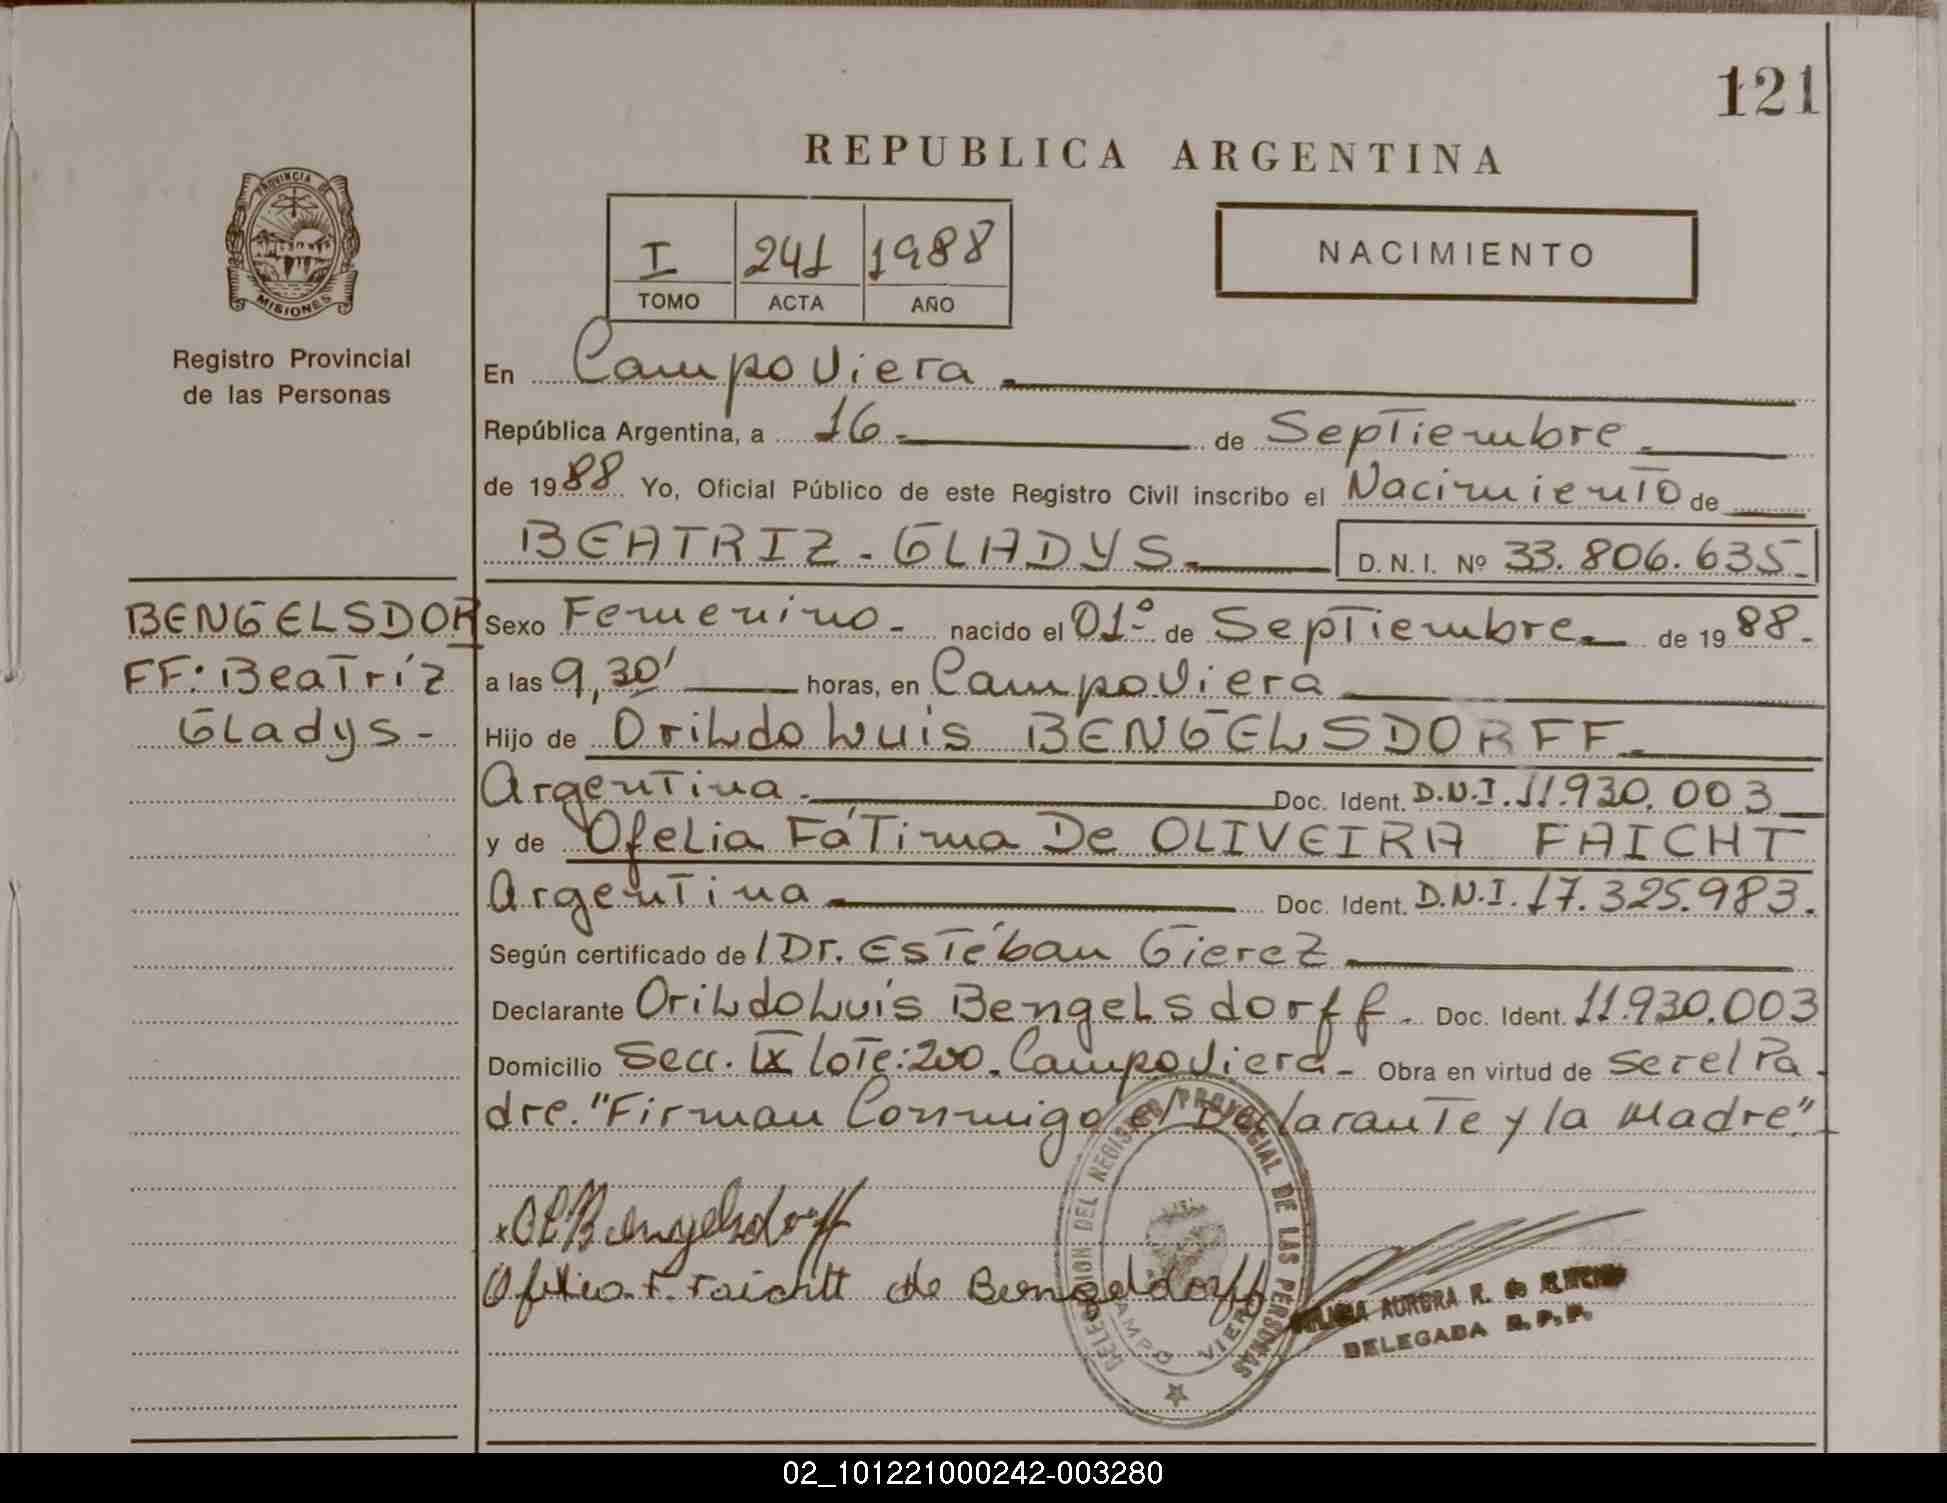 121
REPUBLICA ARGENTINA
PROVINCIA DE
MISIONES
Registro Provincial
de las Personas
I 241 1988
TOMO ACTA AÑO
NACIMIENTO
En Campo Viera
República Argentina, a 16 de Septiembre
de 1988 Yo, Oficial Público de este Registro Civil inscribo el Nacimiento de
BEATRIZ - GLADYS D. N. I. Nº 33.806.635
BENGELSDOR
FF: Beatríz
Gladys -
Sexo Femenino - nacido el 01º de Septiembre de 1988.-
a las 9,30' horas, en Campo Viera
Hijo de Orildo Luis BENGELSDORFF
Argentina Doc. Ident. D.N.I. 11.930.003
y de Ofelia Fátima De OLIVEIRA FAICHT
Argentina Doc. Ident. D.N.I. 17.325.983.
Según certificado de / Dr. Estéban Gierez
Declarante Orildo Luis Bengelsdorff. Doc. Ident. 11.930.003
Domicilio Secc. IX lote: 200. Campo Viera - Obra en virtud de ser el Pa
dre. "Firman Conmigo el Declarante y la Madre"
OLBengelsdorff
Ofelia F. Faichtt de Bengeldorff
DELEGACION DEL REGISTRO PROVINCIAL DE LAS PERSONAS
CAMPO VIERA
AURORA R. de
DELEGADA R. P. P.
02_101221000242-003280